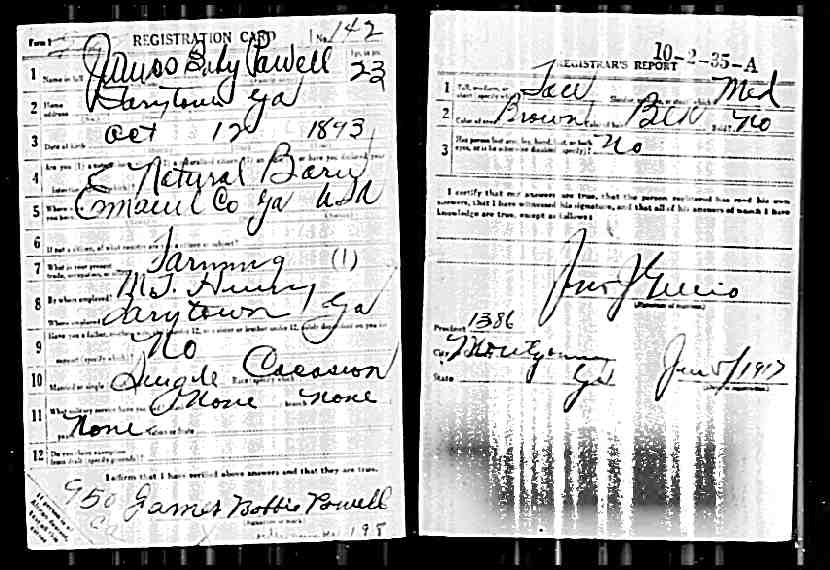 Form 1 REGISTRATION CARD No. 142
1 Name in full James Baby Powell 23
Age, in yrs.
2 Home address Tarrytown Ga
3 Date of birth Oct 12 1893
4 Are you (1) a natural born citizen, (2) a naturalized citizen, (3) an alien, (4) or have you declared your intention (specify which)? Natural Born
5 Where were you born? Emanuel Co Ga USA
6 If not a citizen, of what country are you a citizen or subject?
7 What is your present trade, occupation, or office? Farming (1)
8 By whom employed? M.J.
Where employed? Tarrytown Ga
9 Have you a father, mother, wife, child under 12, or a sister or brother under 12, solely dependent on you for support (specify which)? No
10 Married or single Single Race (specify which) Cocasion
11 What military service have you had? none branch none
years None Nation or State
12 Do you claim exemption from draft (specify grounds)?
I affirm that I have verified above answers and that they are true.
950 James Bobbie Powell
(Signature or mark)
10-2-35-A
REGISTRAR'S REPORT
1 Tall, medium, or short (specify which) Tall Slender, medium, or stout (which) Med
2 Color of eyes Brown Color of hair Blk Bald? No
3 Has person lost arm, leg, hand, foot, or both eyes, or is he otherwise disabled (specify)? No
I certify that my answers are true, that the person registered has read his own
answers, that I have witnessed his signature, and that all of his answers of which I have
knowledge are true, except as follows:
Jno J
(Signature of registrar)
Precinct 1386
City Montgomery
State Ga Jun 5/1917
(Date of registration)